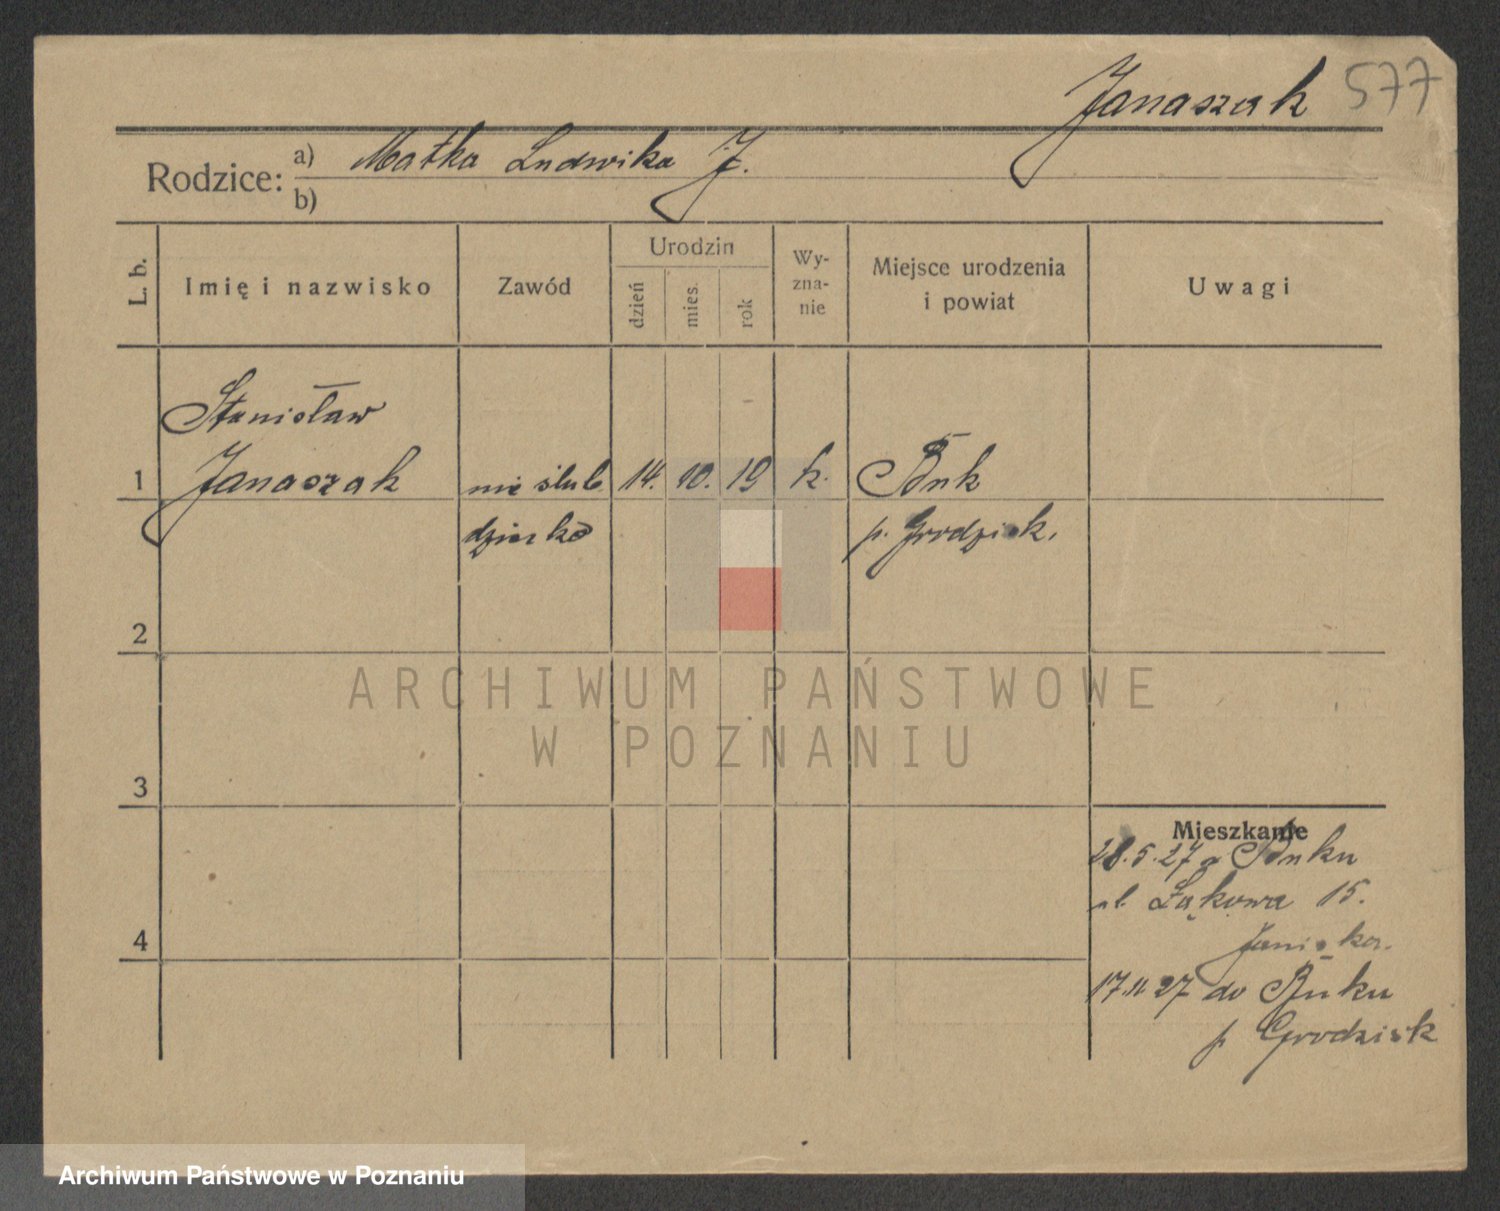 Janaszak 577
Rodzice: a) Matka Ludwika J.
b)
L. b. Imię i nazwisko Zawód Urodzin dzień mies. rok Wy-zna-nie Miejsce urodzenia i powiat Uwagi
Stanisław
1 Janaszak nie ślub. 14. 10. 19 k. Buk
dziecko p. Grodzisk.
2
3
4
Mieszkanie
28.5.27 z Buku
ul. Łąkowa 15.
17.11.27 do Buku
p. Grodzisk
ARCHIWUM PAŃSTWOWE
W POZNANIU
Archiwum Państwowe w Poznaniu